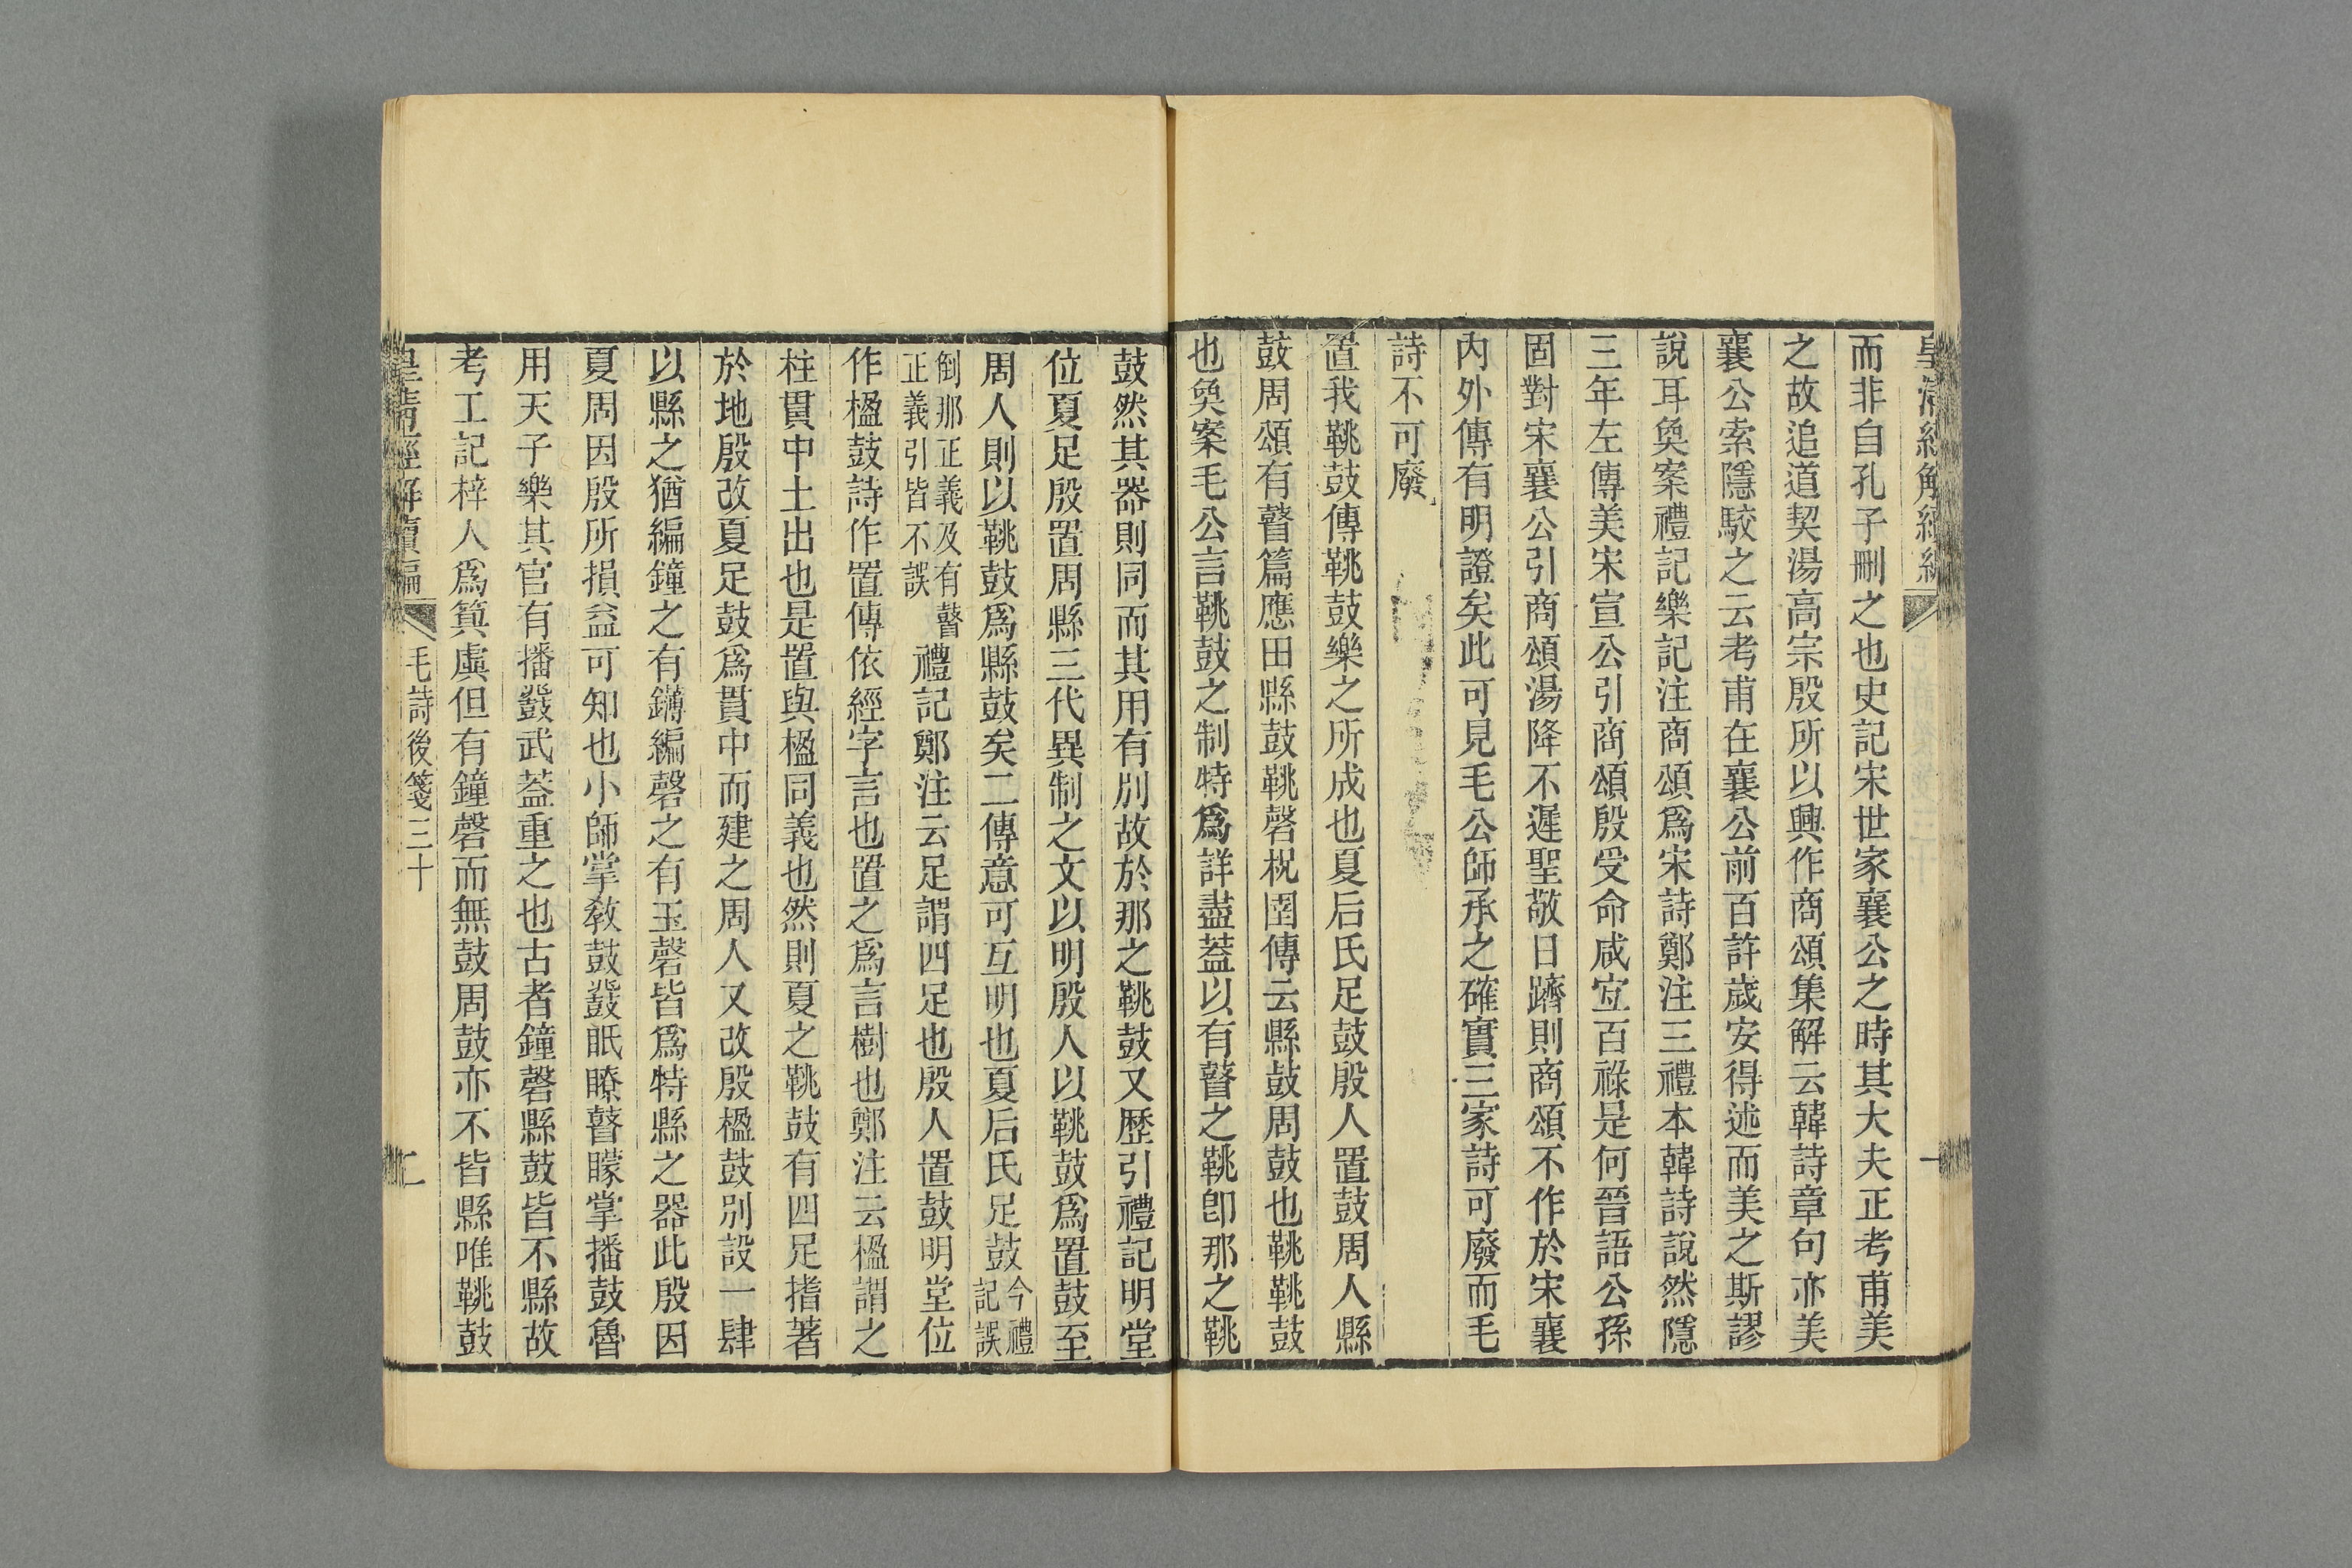 而非自孔子刪之也史記宋世家襄公之時其大夫正考甫美
之故追道契湯高宗殷所以興作商頌集解云韓詩章句亦美
襄公索隱駮之云考甫在襄公前百許歲安得述而美之斯謬
說耳奐案禮記樂記注商頌爲宋詩鄭注三禮本韓詩說然隱
三年左傳美宋宣公引商頌殷受命咸宜百祿是何晉語公孫
固對宋襄公引商頌湯降不遲聖敬日躋則商頌不作於宋襄
內外傳有明證矣此可見毛公師承之確實三家詩可廢而毛
詩不可廢
置我鞉鼓傳鞉鼓樂之所成也夏后氏足鼓殷人置鼓周人縣
鼓周頌有瞽篇應田縣鼓鞉磬柷圉傳云縣鼓周鼓也鞉鞉鼓
也奐案毛公言鞉鼓之制特爲詳盡葢以有瞽之鞉卽那之鞉
鼓然其器則同而其用有別故於那之鞉鼓又歷引禮記明堂
位夏足殷置周縣三代異制之文以明殷人以鞉鼓爲置鼓至
周人則以鞉鼓爲縣鼓矣二傳意可互明也夏后氏足鼓今禮記誤
倒那正義及有瞽正義引皆不誤禮記鄭注云足謂四足也殷人置鼓明堂位
作楹鼓詩作置傳依經字言也置之爲言樹也鄭注云楹謂之
柱貫中上出也是置與楹同義也然則夏之鞉鼓有四足揩著
於地殷改夏足鼓爲貫中而建之周人又改殷楹鼓別設一肆
以縣之猶編鐘之有鑮編磬之有玉磬皆爲特縣之器此殷因
夏周因殷所損益可知也小師掌教鼓鼗眂瞭瞽矇掌播鼓魯
用天子樂其官有播鼗武葢重之也古者鐘磬縣鼓皆不縣故
考工記梓人爲筍虡但有鐘磬而無鼓周鼓亦不皆縣唯鞉鼓
皇清經解續編 毛詩後箋三十 二